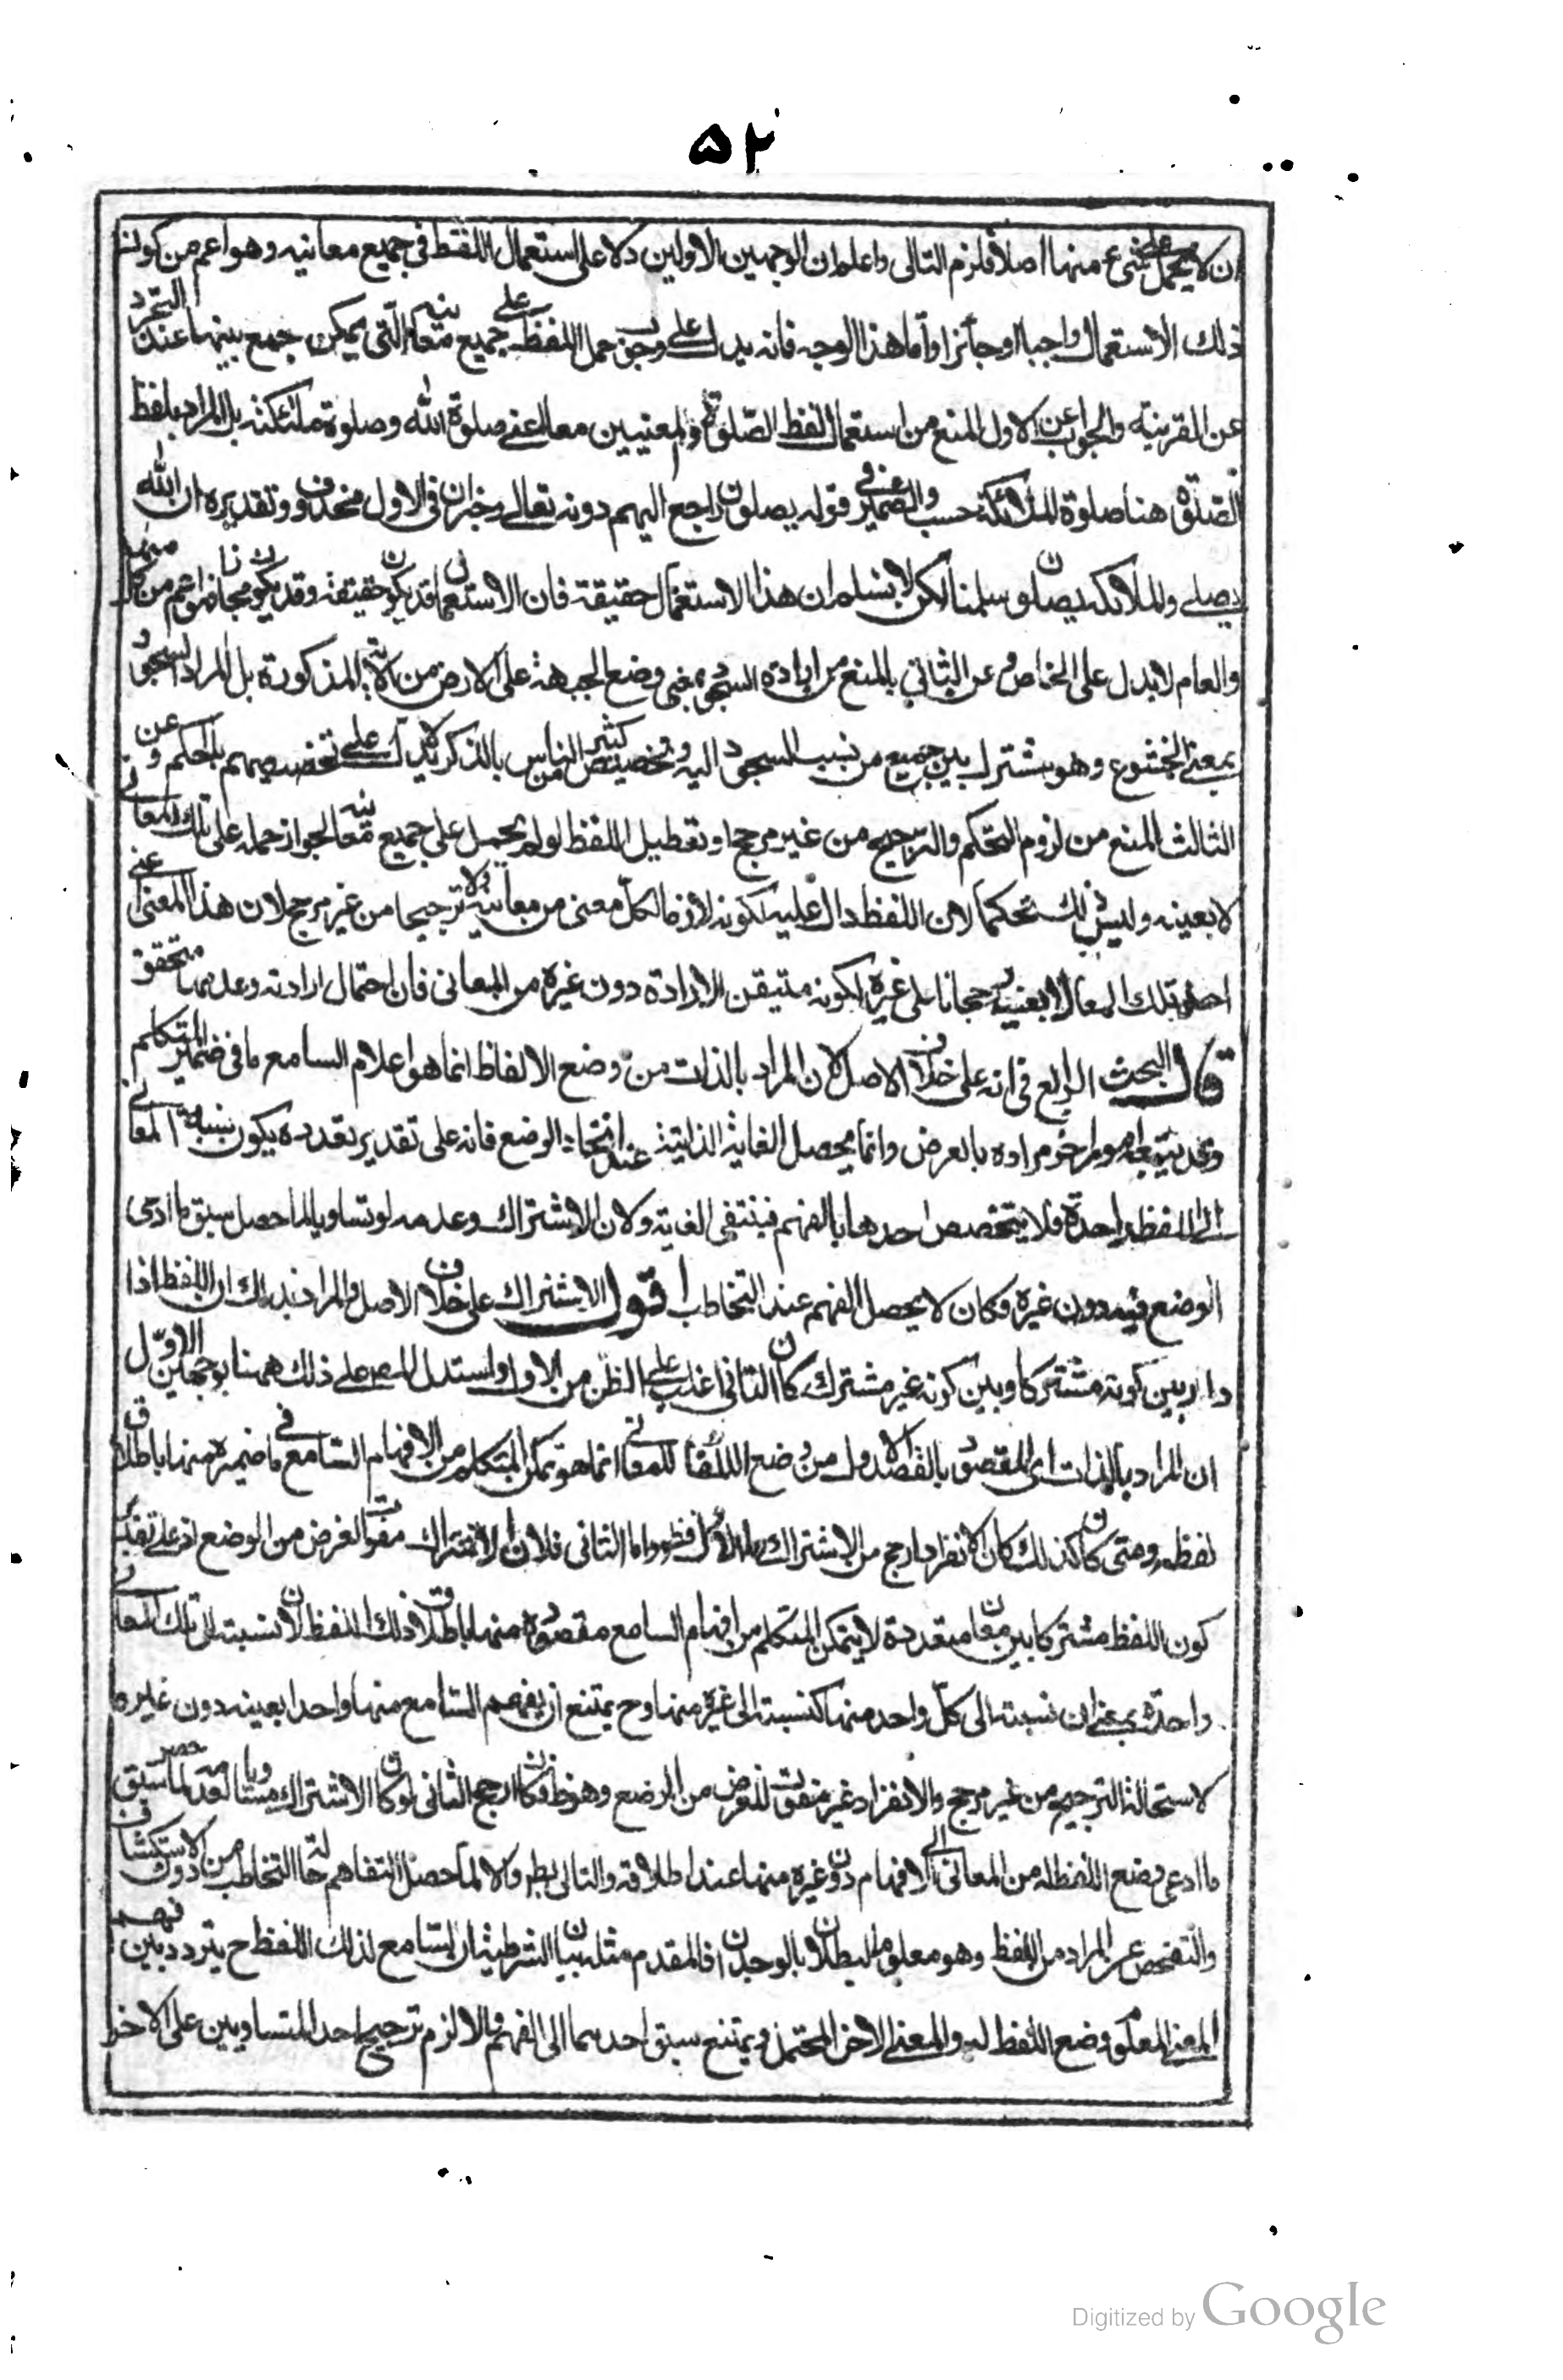 ٥٢
ان لا يحمل على شىء منها اصلا فلزم التالى واعلم ان الوجهين الاولين دلا على استعمال اللفظ فى جميع معانيه وهو اعم من كون
ذلك الاستعمال واجبا او جائزا واما هذا الوجه فانه يدل على وجوب حمل اللفظ على جميع معانيه التى يمكن جمع بينها عند التجرد
عن القرينة والجواب عن الاول المنع من استعمال لفظ الصلوة فى المعنيين معا اعنى صلوة الله وصلوة ملائكته بل المراد بلفظ
الصلوة هنا صلوة الملائكة حسب والضمير فى قوله يصلون راجع اليهم دونه تعالى وخبر ان فى الاول محذوف وتقديره ان الله
يصلى والملائكة يصلون سلمنا لكن لا نسلم ان هذا الاستعمال حقيقة فان الاستعمال قد يكون حقيقة وقد يكون مجازا فهو اعم من كل منهما
والعام لا يدل على الخاص وعن الثانى بالمنع من ارادة السجود بمعنى وضع الجبهة على الارض من الاية المذكورة بل المراد السجود
بمعنى الخشوع وهو مشترك بين جميع من نسب السجود اليه وتخصيص كثير من الناس بالذكر لا يدل على تخصيصهم بالحكم وعن
الثالث المنع من لزوم التحكم والترجيح من غير مرجح او تعطيل اللفظ لو لم يحمل على جميع معانيه لجواز حمله على تلك المعانى
لا بعينه وليس ذلك تحكما لان اللفظ دال عليه لكونه لازما لكل معنى من معانيه ولا ترجيحا من غير مرجح لان هذا المعنى اعنى
احد تلك المعانى لا بعينه رجحانا على غيره لكونه متيقن الارادة دون غيره من المعانى فان احتمال ارادته وعدمها متحقق
قال البحث الرابع فى انه على خلاف الاصل لان المراد بالذات من وضع الالفاظ انما هو اعلام السامع ما فى ضمير المتكلم
وقد يتبعه امور اخر مرادة بالعرض وانما يحصل الغاية الذاتية عند اتحاد الوضع فانه على تقدير تعدده يكون نسبة المعانى
الى اللفظ واحدة فلا يتخصص احدها بالفهم فينتفى الغاية ولان الاشتراك وعدمه لو تساويا لما حصل سبق ما ادعى
الوضع فيه دون غيره فكان لا يحصل الفهم عند التخاطب اقول الاشتراك على خلاف الاصل والمراد بذلك ان اللفظ اذا
دار بين كونه مشتركا وبين كونه غير مشترك كان الثانى اغلب على الظن من الاول واستدل المص على ذلك ههنا بوجهين الاول
ان المراد بالذات اى المقصود بالقصد الاول من وضع اللفظ للمعانى انما هو تمكن المتكلم من الافهام السامع ما فى ضميره منها باطلاق
لفظه ومتى كان كذلك كان الانفراد ارجح من الاشتراك اما الاول فظ واما الثانى فلان الاشتراك مفوت الغرض من الوضع اذ على تقدير
كون اللفظ مشتركا بين معان متعددة لا يتمكن المتكلم من افهام السامع مقصوده منها باطلاق ذلك اللفظ لان نسبته الى تلك المعانى
واحدة بمعنى ان نسبته الى كل واحد منها كنسبته الى غيره منها وح يمتنع ان يفهم السامع منها واحدا بعينه دون غيره
لاستحالة الترجيح من غير مرجح والانفراد غير مفوت للغرض من الوضع وهو ظ فكان ارجح الثانى لو كان الاشتراك مساويا لعدمه لما حصر سبق
ما ادعى وضع اللفظ له من المعانى الى الافهام دون غيره منها عند اطلاقه والتالى بط والا لما حصل التفاهم حالة التخاطب من دون الاستكشاف
والتفحص عن المراد من اللفظ وهو معلوم البطلان بالوجدان فالمقدم مثله بيان الشرطية ان السامع لذلك اللفظ ح يتردد بين فهم
المعنى المعلوم وضع اللفظ له والمعنى الاخر المحتمل ويمتنع سبق احدهما الى الفهم والا لزم ترجيح احد المتساويين على الاخر
Digitized by Google